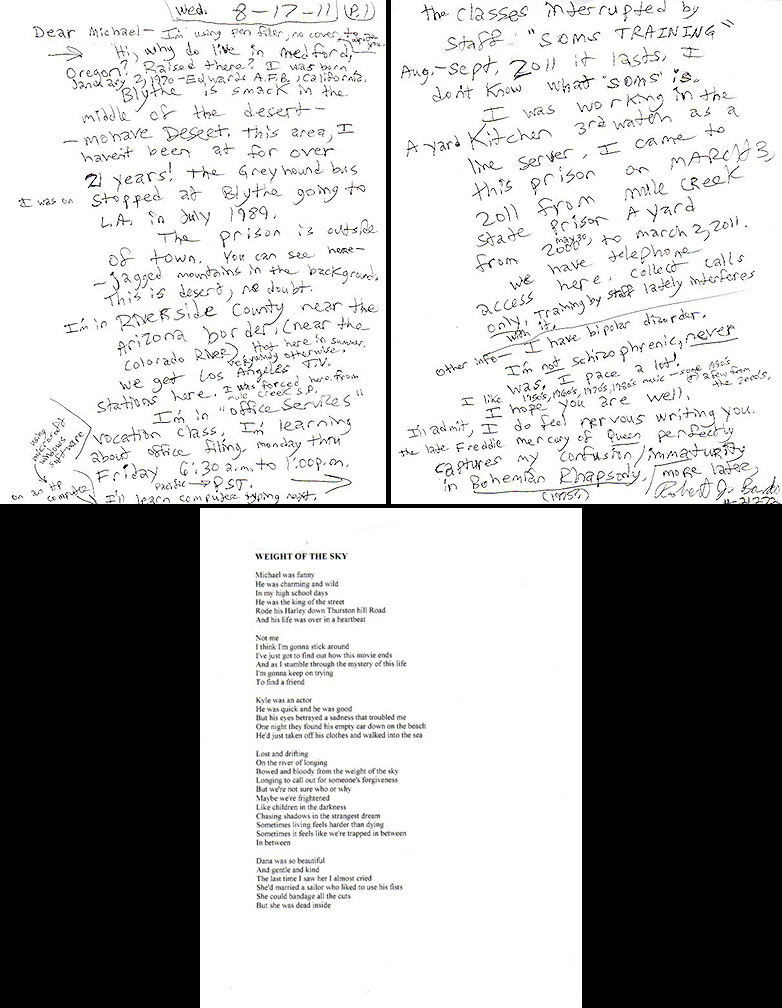 Wed. 8-17-11 (P.1)
Dear Michael- I'm using pen filler, no cover, to
write you.
Hi, why do live in Medford,
Oregon? Raised there? I was born
January 2, 1970-Edwards A.F.B., California.
Blythe is smack in the
middle of the desert-
-mohave Desert. This area, I
haven't been at for over
21 years! the Greyhound bus
I was on stopped at Blythe going to
L.A. in July 1989.
The prison is outside
of town. You can see here-
-jagged mountains in the background.
This is desert, no doubt.
I'm in RIVERSIDE County near the
Arizona border, (near the
Colorado River) Hot here in summer,
very windy otherwise.
we get Los Angeles T.V.
stations here. I was forced here from
mule creek S.P.
I'm in "office Services"
vocation class, I'm learning
about office filing, monday thru
Friday 6:30 a.m. to 1:00 p.m.
Pacific → PST.
I'll learn computer typing next,
using
microsoft
windows
software
on an HP
computer
the classes interrupted by
staff "SOMS TRAINING"
Aug.-Sept, 2011 it lasts, I
don't know what 'SOMS' is.
I was working in the
A yard Kitchen 3rd watch as a
line server. I came to
this prison on MARCH 3,
2011 from mule CREEK
State prison A yard
from may 30, 2000, to march 2, 2011.
we have telephone
access here, collect calls
only. Training by staff lately interferes
with it.
other info- I have bipolar disorder.
I'm not schizophrenic, never
was, I pace a lot!
I like 1950's, 1960's, 1970's, 1980's music - some 1990's
a few from
the 2000's,
I hope you are well.
I'll admit, I do feel nervous writing you.
the late Freddie mercury of Queen perfectly
captures my confusion/immaturity
in Bohemian Rhapsody, more later,
(1975) Robert J. Bardo
WEIGHT OF THE SKY
Michael was funny
He was charming and wild
In my high school days
He was the king of the street
Rode his Harley down Thurston hill Road
And his life was over in a heartbeat
Not me
I think I'm gonna stick around
I've just got to find out how this movie ends
And as I stumble through the mystery of this life
I'm gonna keep on trying
To find a friend
Kyle was an actor
He was quick and he was good
But his eyes betrayed a sadness that troubled me
One night they found his empty car down on the beach
He'd just taken off his clothes and walked into the sea
Lost and drifting
On the river of longing
Bowed and bloody from the weight of the sky
Longing to call out for someone's forgiveness
But we're not sure who or why
Maybe we're frightened
Like children in the darkness
Chasing shadows in the strangest dream
Sometimes living feels harder than dying
Sometimes it feels like we're trapped in between
In between
Dana was so beautiful
And gentle and kind
The last time I saw her I almost cried
She'd married a sailor who liked to use his fists
She could bandage all the cuts
But she was dead inside